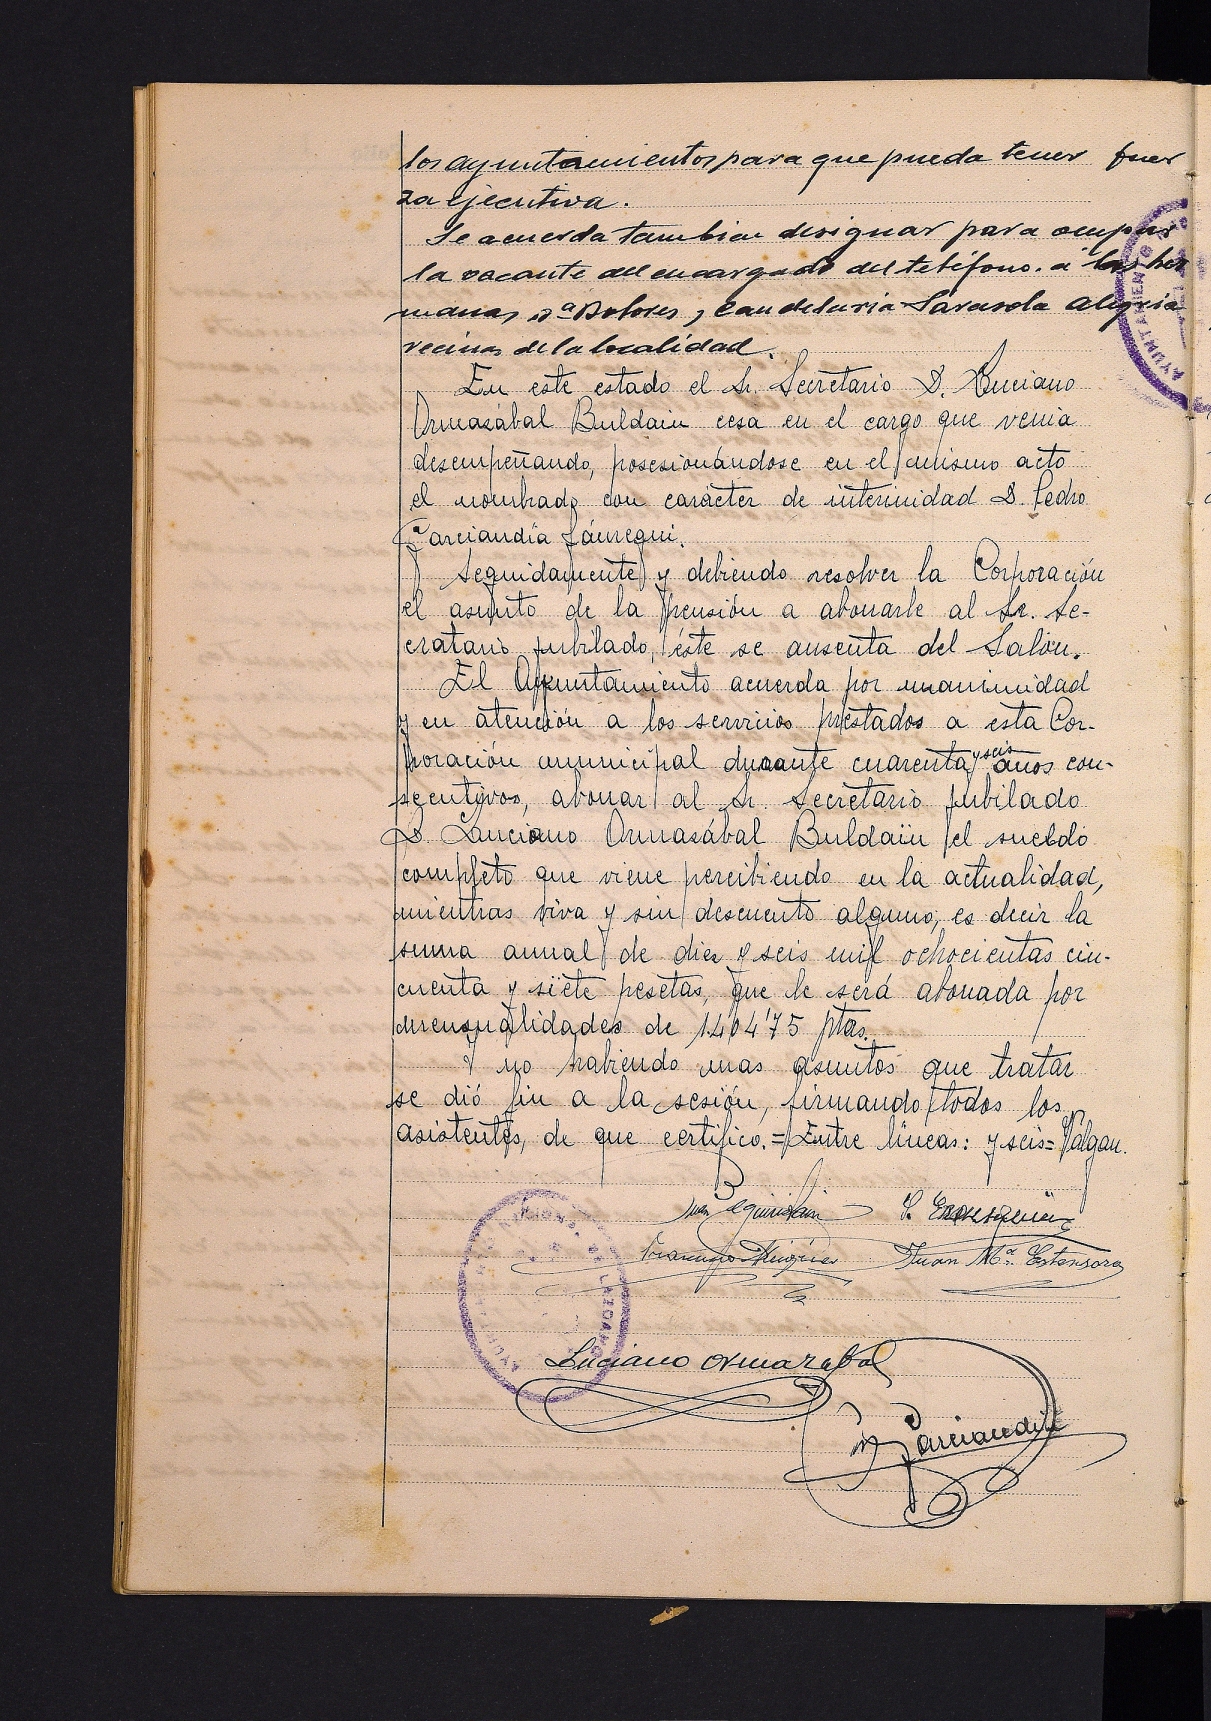 los ayuntamientos para que pueda tener fuer
za ejecutiva.
Se acuerda tambien designar para ocupar
la vacante del encargado del teléfono. a las her
manas, Dª Dolores, Candelaria Sarasola Alegria
vecinas de la localidad.
En este estado el Sr. Secretario D. Luciano
Ormazábal Buldain cesa en el cargo que venia
desempeñando, posesionándose en el mismo acto
el nombrado con carácter de interinidad D. Pedro
Garciandía Jáuregui.
Seguidamente y debiendo resolver la Corporación
el asunto de la pensión a abonarle al Sr. Se-
cratario jubilado, éste se ausenta del Salón.
El Ayuntamiento acuerda por unanimidad
y en atención a los servicios prestados a esta Cor-
poración municipal durante cuarenta y seis años con-
secutivos, abonar al Sr. Secretario jubilado
D. Luciano Ormazábal Buldain el sueldo
completo que viene percibiendo en la actualidad,
mientras viva y sin descuento alguno, es decir la
suma anual de diez y seis mil ochocientas cin-
cuenta y siete pesetas, que le será abonada por
mensualidades de 1404'75 ptas.
Y no habiendo mas asuntos que tratar
se dió fin a la sesión, firmando todos los
asistentes, de que certifico.=Entre líneas: y seis= Valgan.
Juan
Juan Mª. Estensoro
Luciano Ormazabal
P. Garciandia
AYUNTAMIENTO